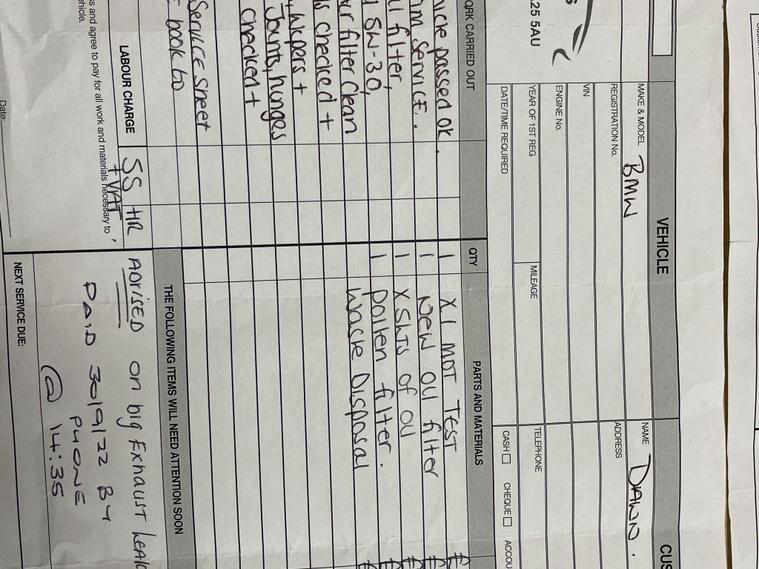 VEHICLE
CUS
MAKE & MODEL BMW
NAME DAWN.
REGISTRATION No.
ADDRESS
VIN
ENGINE No.
YEAR OF 1ST REG
MILEAGE
TELEPHONE
DATE/TIME REQUIRED
CASH
CHEQUE
ACCOU
25 5AU
ORK CARRIED OUT
QTY
PARTS AND MATERIALS
icle passed ok.
1 X1 MOT TEST £
m Service.
1 New oil filter £
l filter,
1 X 5Lts of oil £
5W-30,
1 pollen filter. £
ir filter clean
Waste Disposal £
s checked +
Wipers +
Joints, hinges
checked +
Service sheet
book to
THE FOLLOWING ITEMS WILL NEED ATTENTION SOON
LABOUR CHARGE 55 HR
+ VAT
ADVISED on big Exhaust Leak
s and agree to pay for all work and materials necessary to
hicle.
PAID 30/9/22 BY
PHONE
@ 14:35
NEXT SERVICE DUE:
Date: